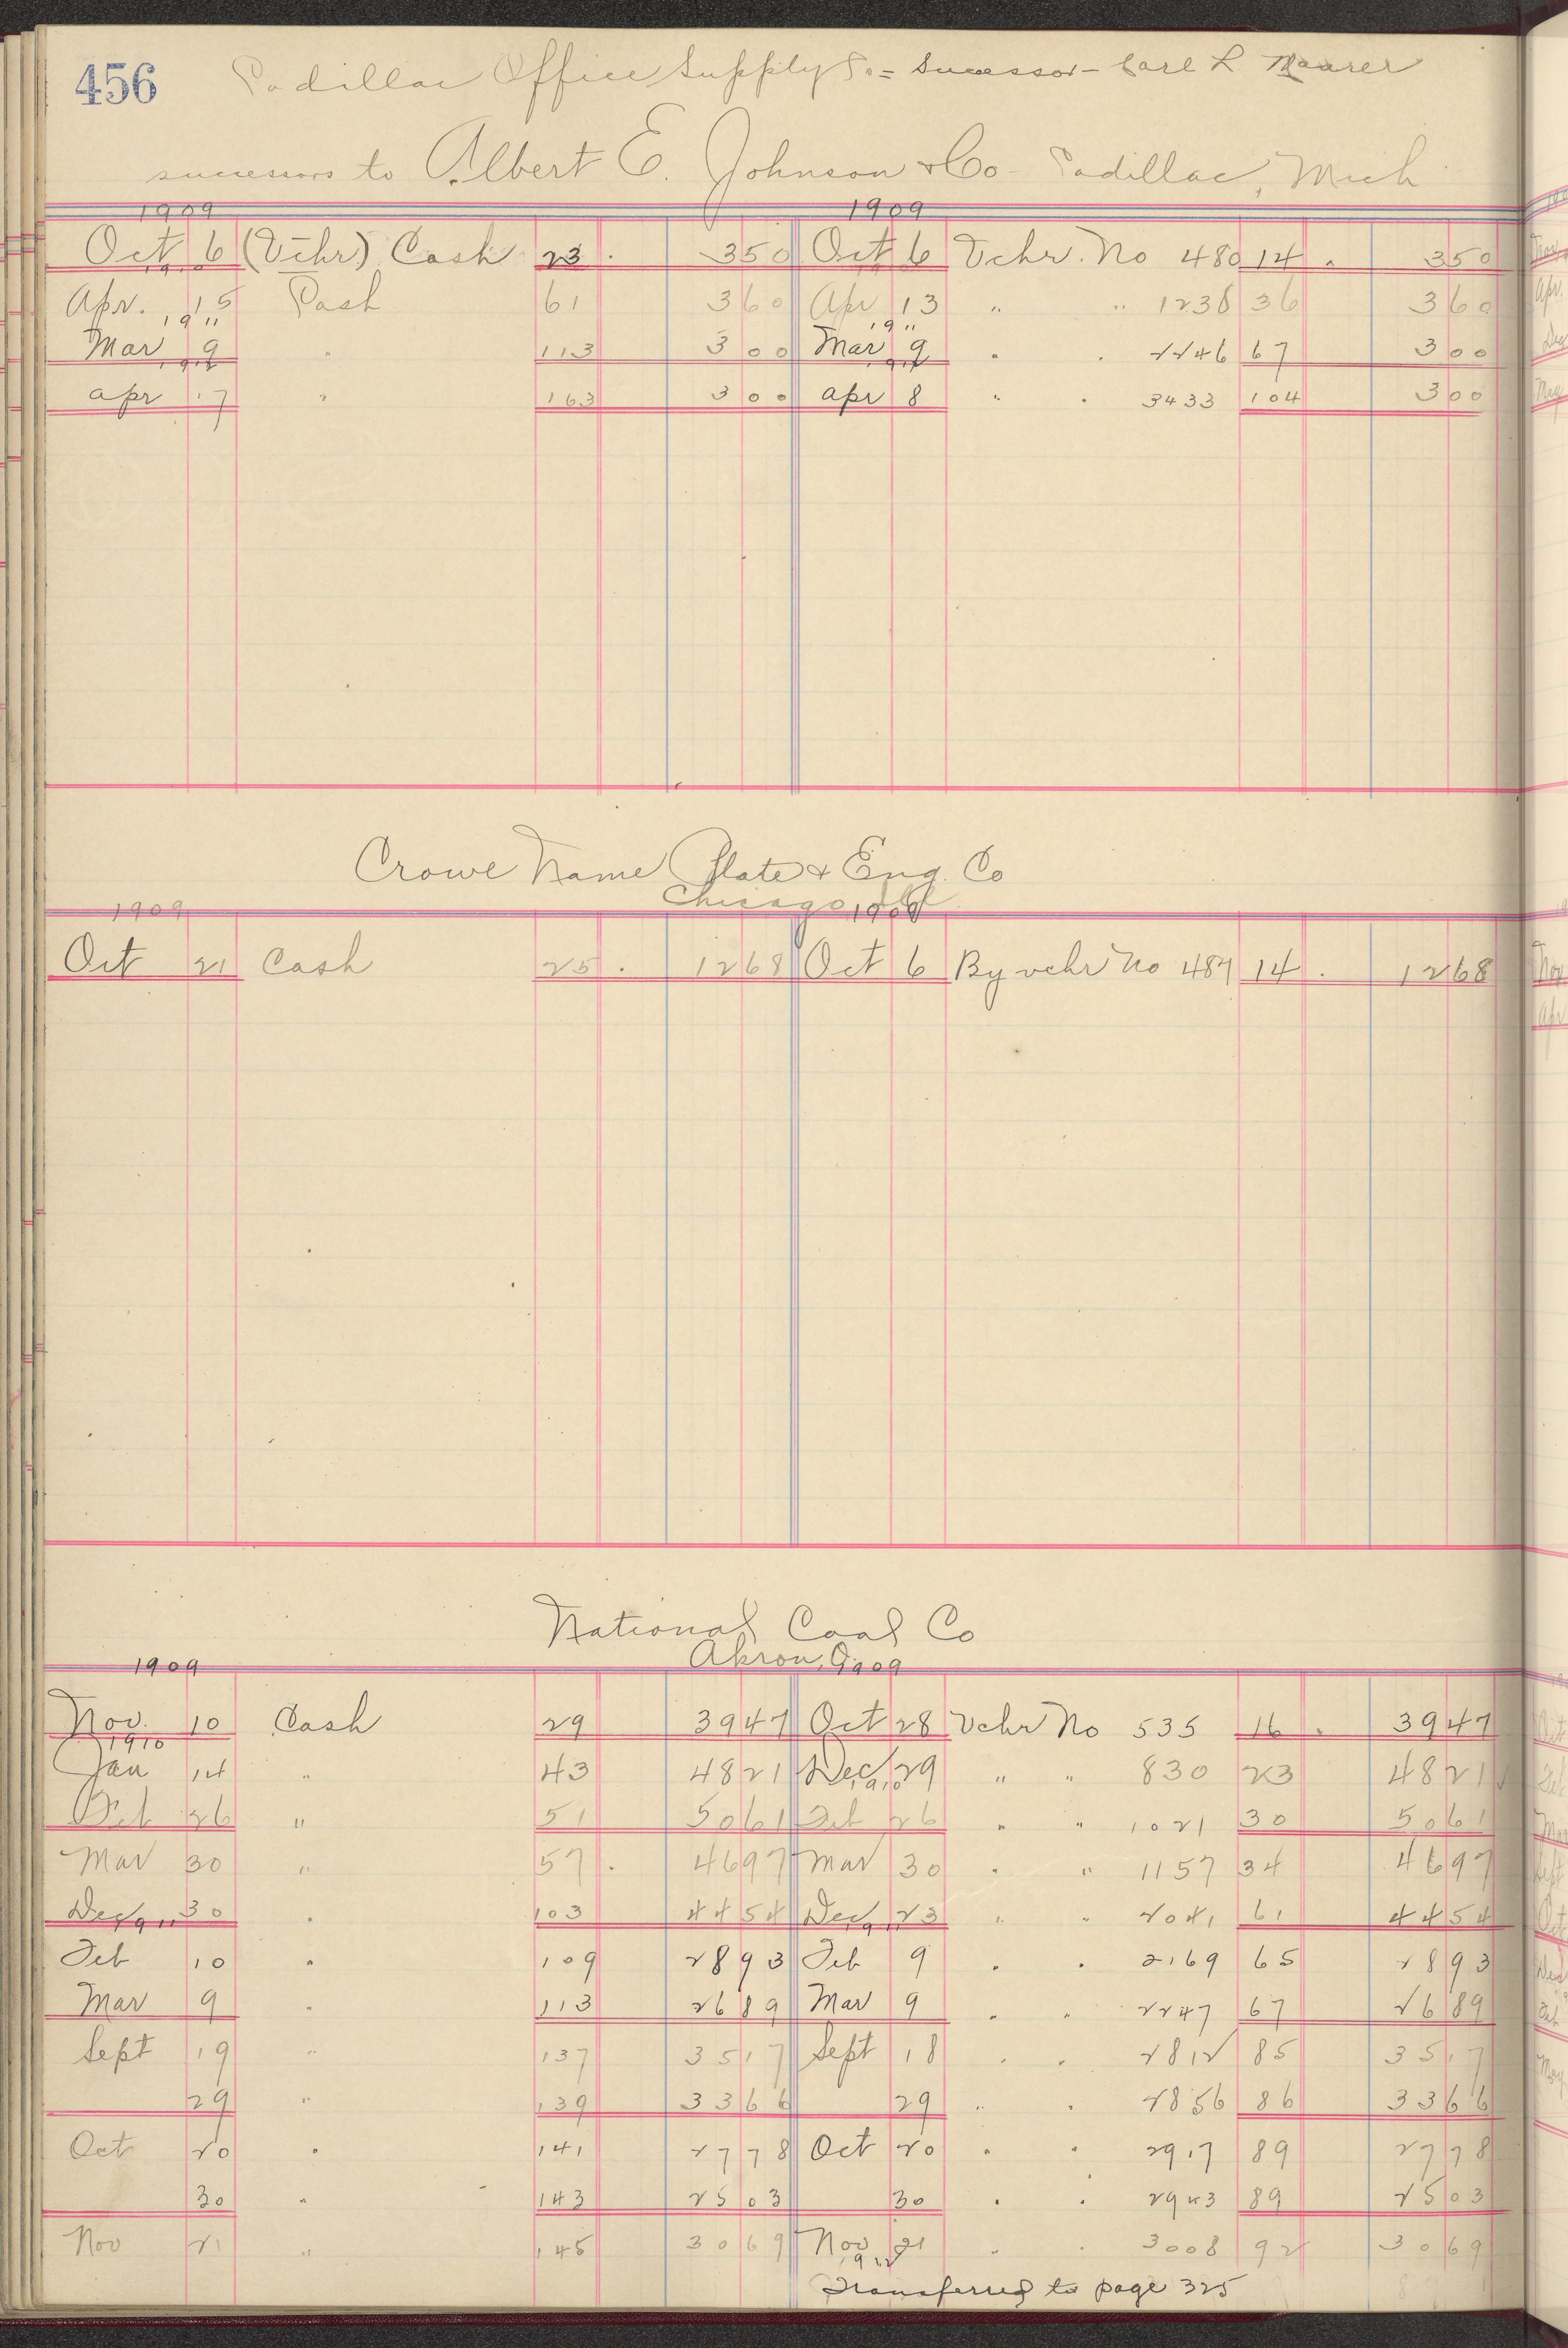 456 Cadillac Office Supply Co = Successor - Carl L Maurer
successors to Albert E. Johnson & Co - Cadillac, Mich
1909 1909
Oct 6 (Vchr) Cash 23 . 3 50 Oct 6 Vchr. No 480 14 . 3 50
1910 1910
Apr. 15 Cash 61 3 60 Apr 13 " " 1238 36 3 60
1911 1911
Mar 9 " 113 3 00 Mar 9 " " 2246 67 3 00
1912 1912
Apr 17 " 163 3 00 Apr 8 " " 3433 104 3 00
Crowe Name Plate & Eng. Co
Chicago, Ill
1909 1909
Oct 21 Cash 25 . 12 68 Oct 6 By vchr No 487 14 . 12 68
National Coal Co
Akron, O.
1909 1909
Nov. 10 Cash 29 39 47 Oct 28 Vchr No 535 16 . 39 47
1910
Jan 14 " 43 48 21 Dec 29 " " 830 23 48 21
1910
Feb 26 " 51 50 61 Feb 26 " " 1021 30 50 61
Mar 30 " 57 . 46 97 Mar 30 " " 1157 34 46 97
Dec 30 " 103 44 54 Dec 23 " " 2041 61 44 54
1911 1911
Feb 10 " 109 28 93 Feb 9 " " 2169 65 28 93
Mar 9 " 113 26 89 Mar 9 " " 2247 67 26 89
Sept 19 " 137 35 17 Sept 18 " " 2812 85 35 17
29 " 139 33 66 29 " " 2856 86 33 66
Oct 20 " 141 27 78 Oct 20 " " 2917 89 27 78
30 " 143 25 03 30 " " 2943 89 25 03
Nov 21 " 145 30 69 Nov 21 " " 3008 92 30 69
1912
Transferred to page 325